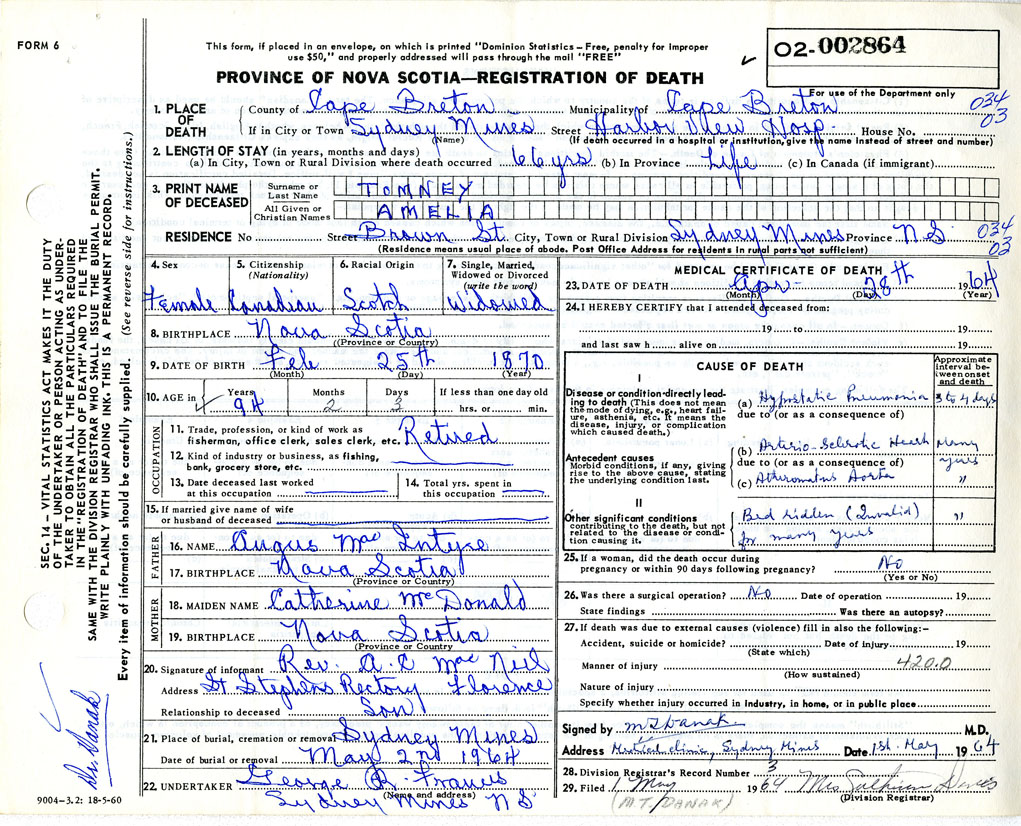 FORM 6
This form, if placed in an envelope, on which is printed "Dominion Statistics – Free, penalty for improper
use $50," and properly addressed will pass through the mail "FREE"
PROVINCE OF NOVA SCOTIA—REGISTRATION OF DEATH
02-002864
For use of the Department only
034
03
1. PLACE OF DEATH
County of Cape Breton Municipality of Cape Breton
If in City or Town Sydney Mines Street Harbor View Hosp. House No.
(Name) (If death occurred in a hospital or institution, give the name instead of street and number)
2. LENGTH OF STAY (in years, months and days)
(a) In City, Town or Rural Division where death occurred 66 yrs (b) In Province Life (c) In Canada (if immigrant)
3. PRINT NAME OF DECEASED
Surname or Last Name TOMNEY
All Given or Christian Names AMELIA
RESIDENCE No Street Brown St. City, Town or Rural Division Sydney Mines Province N S
034
03
(Residence means usual place of abode. Post Office Address for residents in rural parts not sufficient)
4. Sex Female
5. Citizenship (Nationality) Canadian
6. Racial Origin Scotch
7. Single, Married, Widowed or Divorced (write the word) Widowed
8. BIRTHPLACE Nova Scotia
(Province or Country)
9. DATE OF BIRTH Feb 25th 1870
(Month) (Day) (Year)
10. AGE in Years 94 Months 2 Days 3 If less than one day old hrs. or min.
OCCUPATION
11. Trade, profession, or kind of work as
fisherman, office clerk, sales clerk, etc. Retired
12. Kind of industry or business, as fishing,
bank, grocery store, etc.
13. Date deceased last worked
at this occupation
14. Total yrs. spent in
this occupation
15. If married give name of wife
or husband of deceased
FATHER
16. NAME Angus Mac Intyre
17. BIRTHPLACE Nova Scotia
(Province or Country)
MOTHER
18. MAIDEN NAME Catherine McDonald
19. BIRTHPLACE Nova Scotia
(Province or Country
20. Signature of informant Rev. A. C Mac Neil
Address St Stephens Rectory Florence
Relationship to deceased Son
21. Place of burial, cremation or removal Sydney Mines
Date of burial or removal May 2nd 1964
22. UNDERTAKER George R. Francis
(Name and address)
Sydney Mines N S
MEDICAL CERTIFICATE OF DEATH
23. DATE OF DEATH Apr 28th 1964
(Month) (Day) (Year)
24. I HEREBY CERTIFY that I attended deceased from:
19 to 19
and last saw h alive on 19
CAUSE OF DEATH
Approximate interval between onset and death
I
Disease or condition directly leading to death (This does not
mean the mode of dying, e.g., heart failure, asthenia, etc. It means the
disease, injury, or complication
which caused death.)
(a) Hypostatic Pneumonia 3 to 4 days
due to (or as a consequence of)
Antecedent causes
Morbid conditions, if any, giving
rise to the above cause, stating
the underlying condition last.
(b) Arterio-Sclerotic Heart Many years
due to (or as a consequence of)
(c) Atheromatus Aorta "
II
Other significant conditions
contributing to the death, but not
related to the disease or condition causing it.
Bed ridden (Invalid) "
for many years
25. If a woman, did the death occur during
pregnancy or within 90 days following pregnancy? No
(Yes or No)
26. Was there a surgical operation? No Date of operation 19
State findings Was there an autopsy?
27. If death was due to external causes (violence) fill in also the following:–
Accident, suicide or homicide? Date of injury 19
(State which)
Manner of injury 420.0
(How sustained)
Nature of injury
Specify whether injury occurred in industry, in home, or in public place
Signed by M T Danak M.D.
Address Medical Clinic, Sydney Mines Date 1st May 1964
28. Division Registrar's Record Number 3
29. Filed 1 May 1964 Mrs
(Division Registrar)
(M.T. DANAK)
SEC. 14 – VITAL STATISTICS ACT MAKES IT THE DUTY
OF THE UNDERTAKER OR PERSON ACTING AS UNDERTAKER TO OBTAIN ALL THE PARTICULARS REQUIRED
IN THE "REGISTRATION OF DEATH" AND TO FILE THE
SAME WITH THE DIVISION REGISTRAR WHO SHALL ISSUE THE BURIAL PERMIT.
WRITE PLAINLY WITH UNFADING INK. THIS IS A PERMANENT RECORD.
Every item of information should be carefully supplied. (See reverse side for instructions.)
Dr. Danak
9004–3.2: 18-5-60